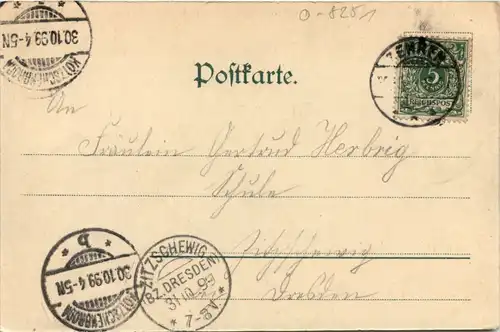 O-8251
30.10.99.4-5N
KÖTZSCHENBRODA
ZEHREN
5
REICHSPOST
Postkarte.
An
Fräulein Gertrud Herbrig
Schule
Zitzschewig
bei Dresden
b
30.10.99.4-5N
KÖTZSCHENBRODA
ZITZSCHEWIG
(BZ. DRESDEN)
31.10.99